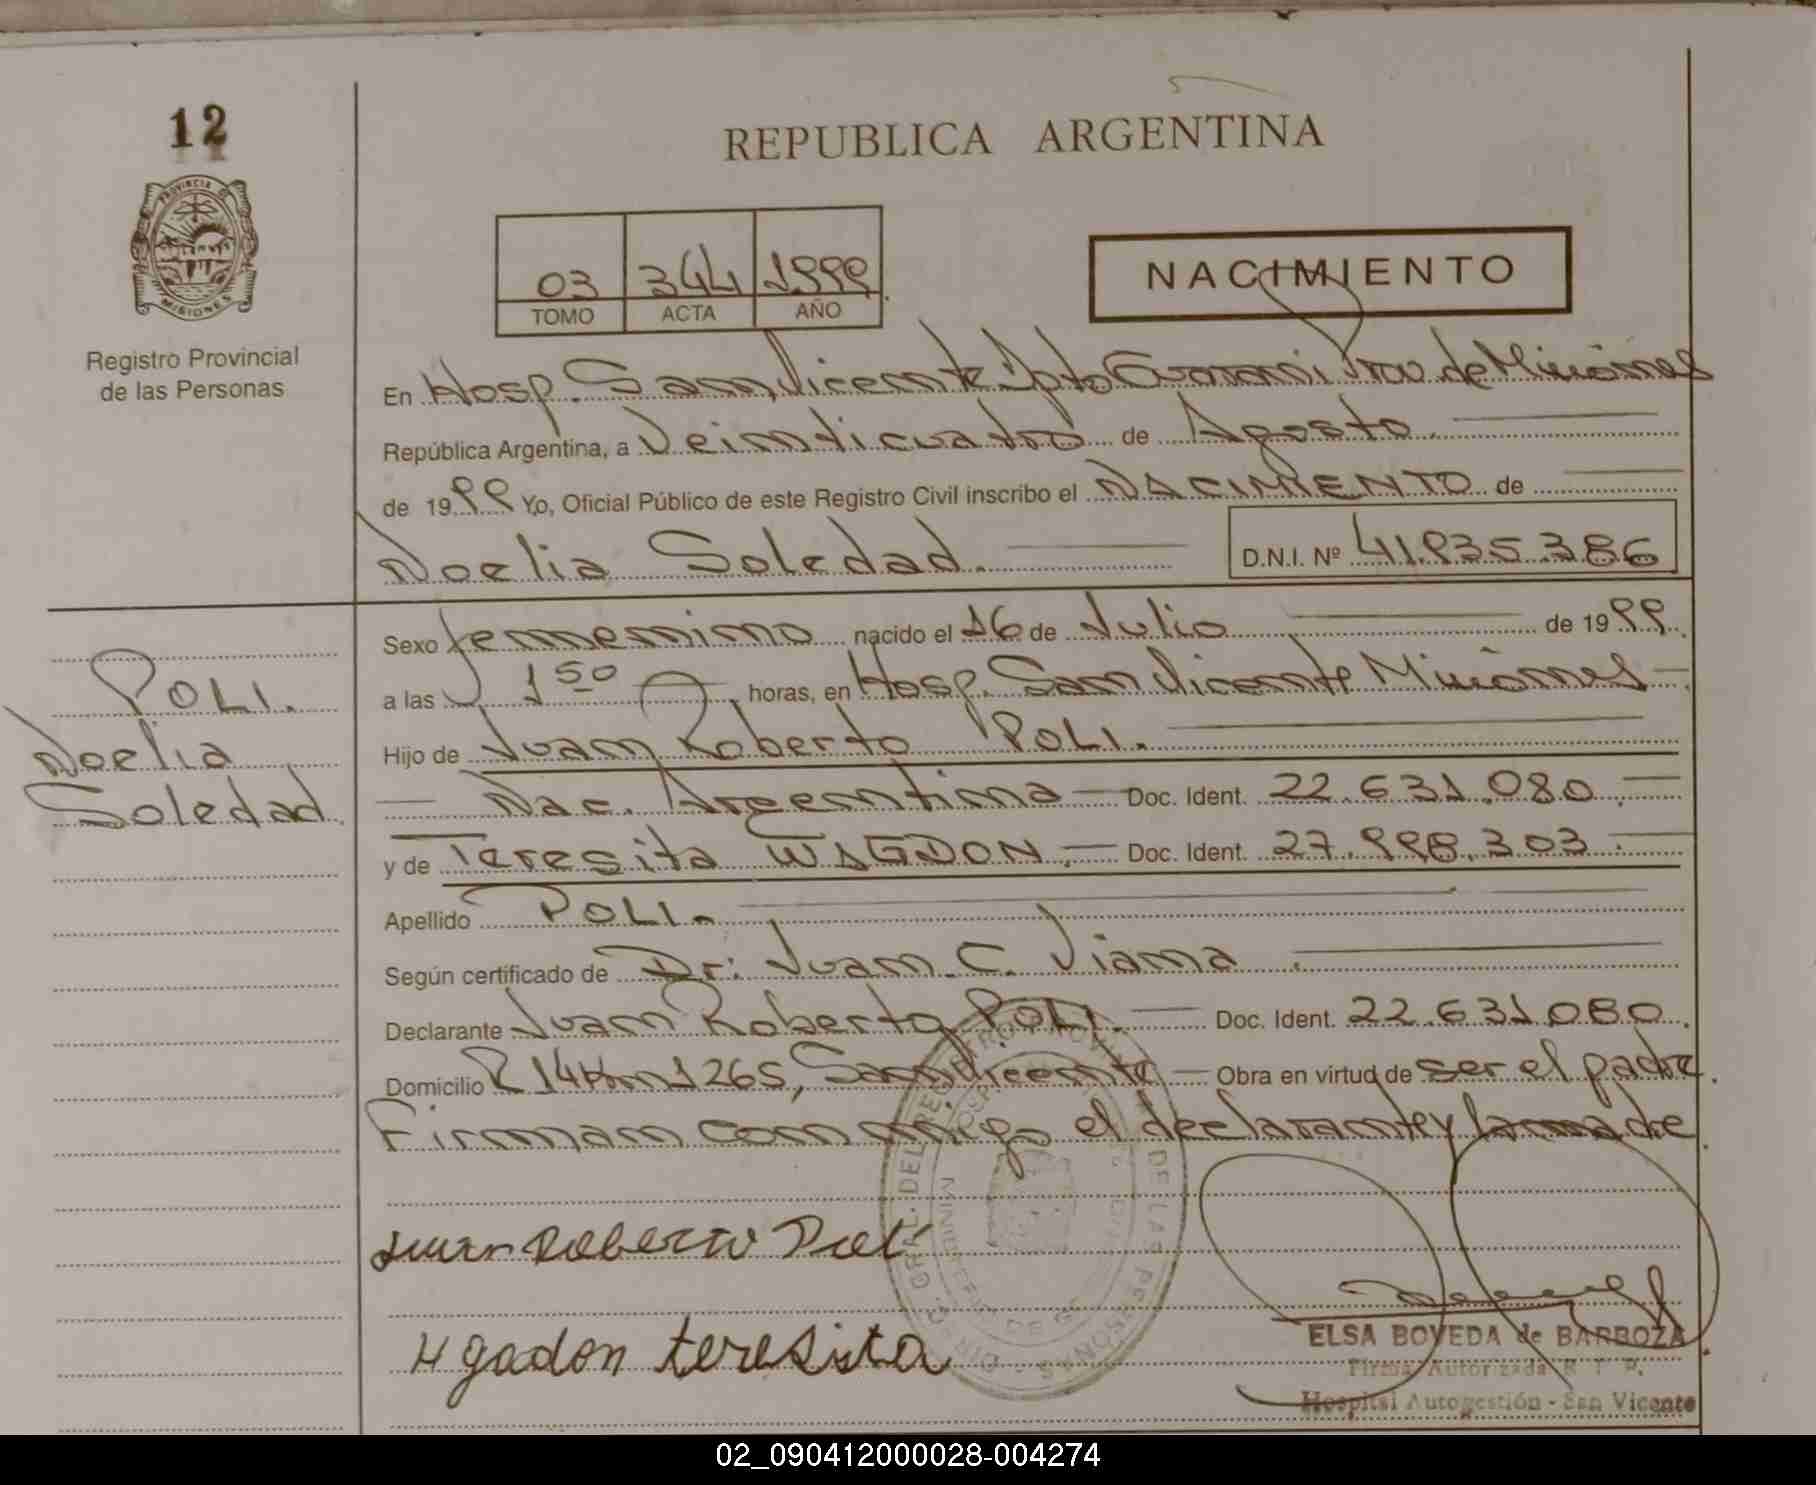 12
REPUBLICA ARGENTINA
PROVINCIA DE
MISIONES
Registro Provincial
de las Personas
03 344 1999
TOMO ACTA AÑO
NACIMIENTO
En Hosp. San Vicente Dpto Guarani Prov. de Misiones
República Argentina, a Veinticuatro de Agosto.
de 1999 Yo, Oficial Público de este Registro Civil inscribo el NACIMIENTO de
Noelia Soledad. D.N.I. Nº 41.935.386
Sexo femenino nacido el 16 de Julio de 1999.
a las 1 50 horas, en Hosp. San Vicente Misiones
Hijo de Juan Roberto POLI.
Nac. Argentina Doc. Ident. 22.631.080.
y de Teresita Doc. Ident. 27.998.303.
Apellido POLI.
Según certificado de Dr: Juan C. Viana.
Declarante Juan Roberto POLI. Doc. Ident. 22.631.080.
Domicilio R 14 Km 1265, San Vicente Obra en virtud de ser el padre.
Firman conmigo el declarante y la madre.
POLI.
Noelia
Soledad.
Juan Roberto Poli
teresita
ELSA BOVEDA de BARBOZA
Firma Autorizada R. T. P.
Hospital Autogestión - San Vicente
02_090412000028-004274